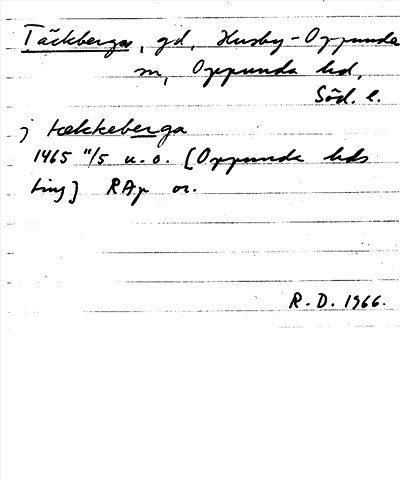 Täckberga, gd, Husby-Oppunda
sn, Oppunda hd,
Söd. l.
j tækkeberga
1465 11/5 u.o. [Oppunda hds
ting] RAp or.
R.D. 1966.